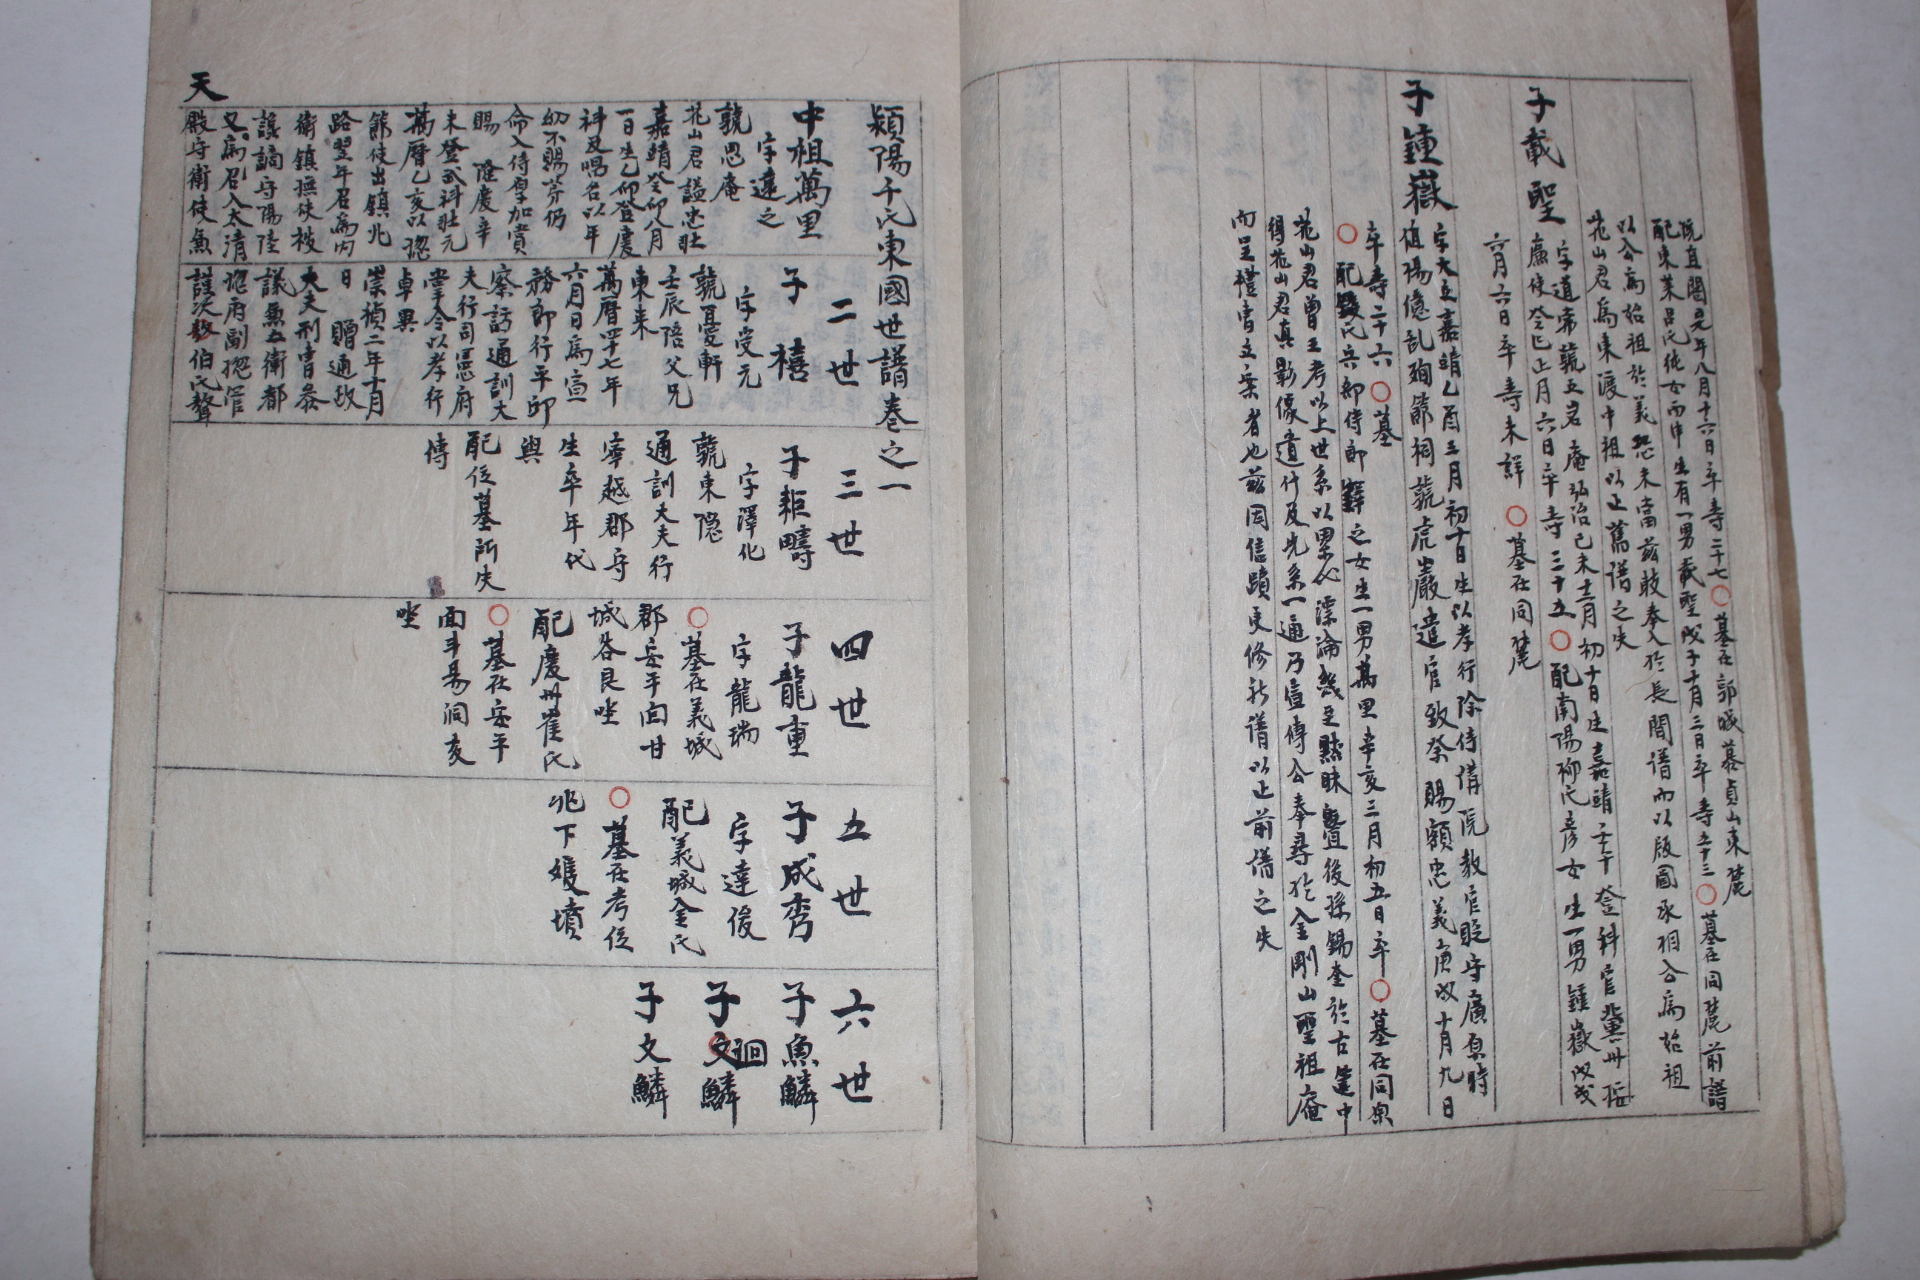 院直閣元年八月十六日卒寺二十七○墓在郭城慕貞山東麓
配東萊呂氏純女而中生有一男載聖戊子十月三日卒寺五十三○墓在同麓前譜
以公爲始祖於義恐未當玆敢奉入於長間譜而以版圖丞相公爲始祖
花山君爲東渡中祖以正舊譜之失
子載聖
字道宗號立岩庵弘治己未十二月初十日生嘉靖壬午登科官冀州按
廉使癸巳正月六日卒寺三十五○配南陽柳氏彦女生一男鍾嶽戊戌
六月六日卒寿未詳○墓在同麓
子鍾嶽
字大立嘉靖乙酉三月初十日生以孝行除侍講院敎官貶守廣原時
値楊億乱殉節祠號虎巖遣官致祭賜額忠義庚戌十月九日
卒寿二十六○墓
○配錢氏兵部侍郎鐸之女生一男萬里辛亥三月初五日卒○墓在同原
花山君曾王考以上世系以累心漂淪幾至黙昧曁後孫錫奎於古篋中
得花山君眞影像遺什及先系一通乃宣傳公奉尋於金剛山聖祖庵
而呈禮曹立案者也玆因信蹟更修於譜以正前譜之失
潁陽千氏東國世譜卷之一
中祖萬里
字遠之
號思庵
花山君諡忠壯
嘉靖癸卯八月
一日生乙卯登慶
科及唱名以年
幼不賜芬仍
命入侍厚加賞
賜 隆慶辛
未登武科壯元
萬曆乙亥以摠
節使出鎮北
路翌年召爲內
衛鎮撫使被
讒謫守陽陸
又爲召入太清
天
殿守衛使兼
二世
子禧
字受元
號憂軒
壬辰陪父兄
東來
萬曆四十七年
六月日爲宣
務郎行平卯
察訪通訓大
夫行司憲府
掌令以孝行
卓異
崇禎二年十月
日 贈通政
大夫刑曹參
議兼五衛都
摠府副摠管
謹次敎伯氏聱
三世
子秬疇
字澤化
號東隱
通訓大夫行
寧越郡守
生卒年代
與
配位墓所失
傳
四世
子龍重
字龍瑞
○墓在義城
郡安平面甘
城谷艮坐
配慶州崔氏
○墓在安平
面斗昜洞亥
坐
五世
子成秀
字達俊
配義城金氏
○墓在考位
兆下雙墳
六世
子魚鱗
子文鱗
廻
子文鱗